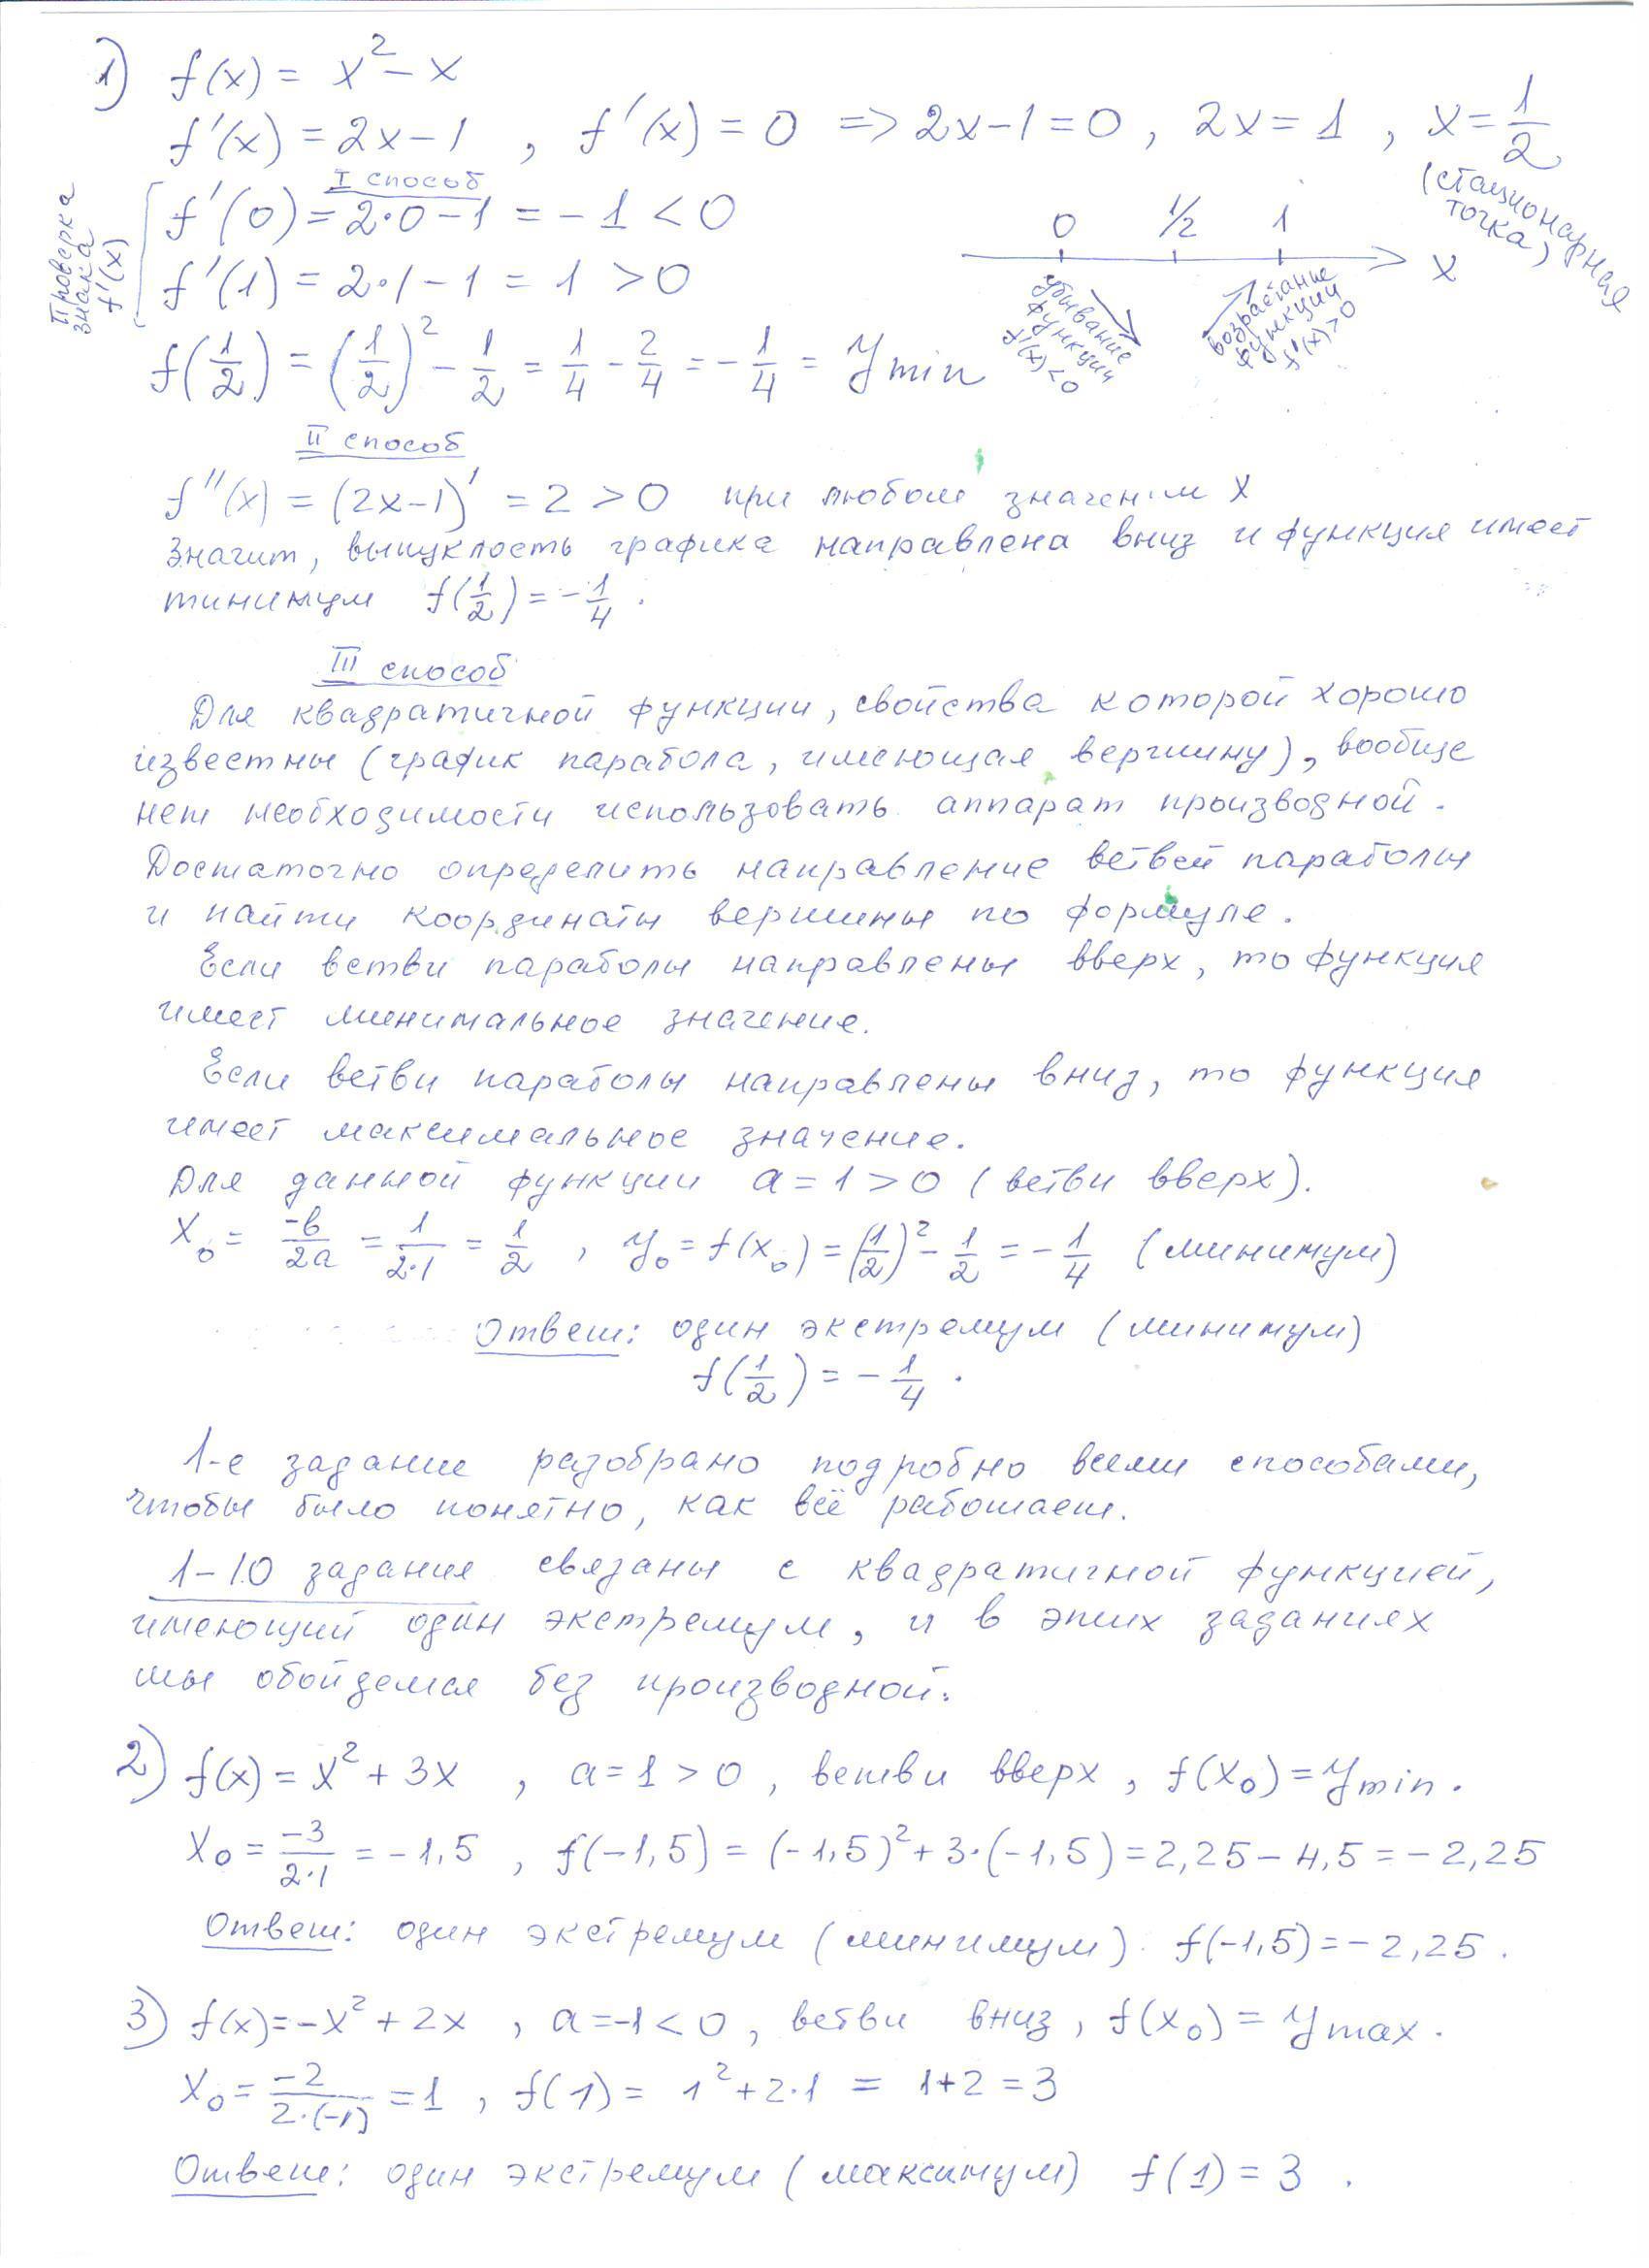 1) f(x) = x² - x
f'(x) = 2x - 1 , f'(x) = 0 => 2x - 1 = 0 , 2x = 1 , x = 1/2
(стационарная точка)
I способ
Проверка знака f'(x)
f'(0) = 2·0 - 1 = -1 < 0
f'(1) = 2·1 - 1 = 1 > 0
0 1/2 1 x
убывание функции f'(x) < 0
возрастание функции f'(x) > 0
f(1/2) = (1/2)² - 1/2 = 1/4 - 2/4 = -1/4 = y min
II способ
f''(x) = (2x-1)' = 2 > 0 при любом значении x
Значит, выпуклость графика направлена вниз и функция имеет
минимум f(1/2) = -1/4 .
III способ
Для квадратичной функции, свойства которой хорошо
известны (график парабола, имеющая вершину), вообще
нет необходимости использовать аппарат производной.
Достаточно определить направление ветвей параболы
и найти координаты вершины по формуле.
Если ветви параболы направлены вверх, то функция
имеет минимальное значение.
Если ветви параболы направлены вниз, то функция
имеет максимальное значение.
Для данной функции a = 1 > 0 (ветви вверх).
x₀ = -b/2a = 1/2·1 = 1/2 , y₀ = f(x₀) = (1/2)² - 1/2 = -1/4 (минимум)
Ответ: один экстремум (минимум)
f(1/2) = -1/4 .
1-е задание разобрано подробно всеми способами,
чтобы было понятно, как всё работает.
1-10 задания связаны с квадратичной функцией,
имеющий один экстремум, и в этих заданиях
мы обойдемся без производной.
2) f(x) = x² + 3x , a = 1 > 0 , ветви вверх , f(x₀) = y min .
x₀ = -3/2·1 = -1,5 , f(-1,5) = (-1,5)² + 3·(-1,5) = 2,25 - 4,5 = -2,25
Ответ: один экстремум (минимум) f(-1,5) = -2,25 .
3) f(x) = -x² + 2x , a = -1 < 0 , ветви вниз , f(x₀) = y max .
x₀ = -2/2·(-1) = 1 , f(1) = 1² + 2·1 = 1+2 = 3
Ответ: один экстремум (максимум) f(1) = 3 .